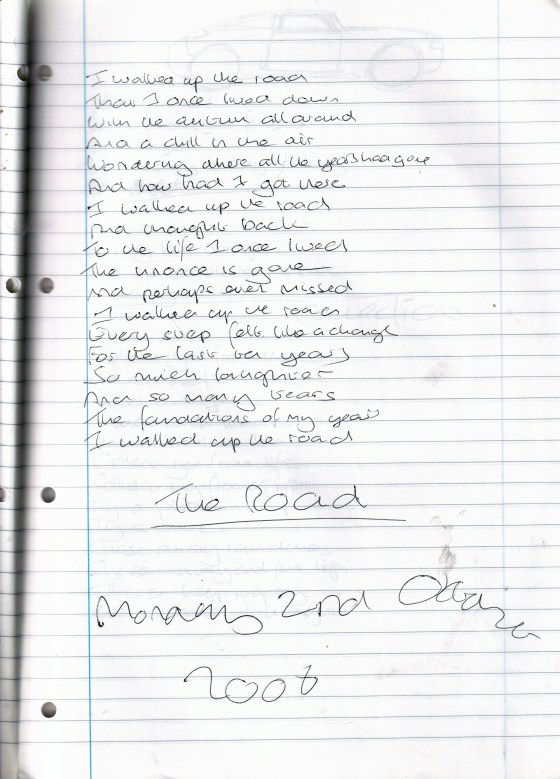 I walked up the road
That I once lived down
With the autumn all around
And a chill in the air
Wondering where all the years had gone
And how had I got here
I walked up the road
And thought back
To the life I once lived
The is gone
And perhaps even missed
I walked up the road
Every step felt like a change
For the last ten years
So much laughter
And so many tears
The foundations of my years
I walked up the road
The Road
Monday 2nd October
2006